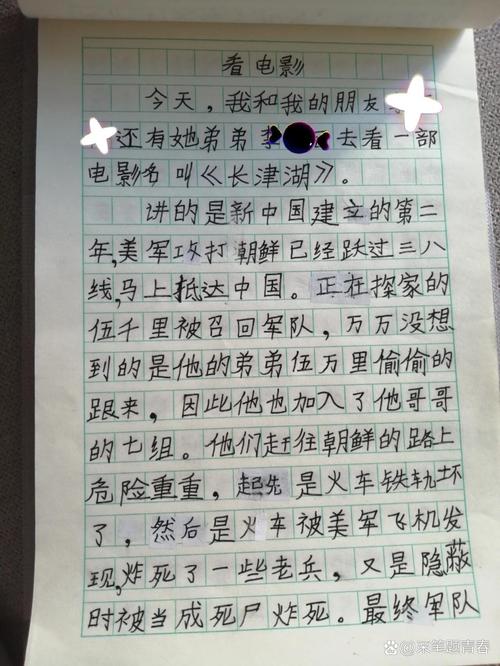 看电影
今天，我和我的朋友
还有她弟弟李去看一部
电影名叫《长津湖》。
讲的是新中国建立的第二
年,美军攻打朝鲜已经跃过三八
线,马上抵达中国。正在探家的
伍千里被召回军队，万万没想
到的是他的弟弟伍万里偷偷的
跟来，因此他也加入了他哥哥
的七组。他们赶往朝鲜的路上
危险重重，起先是火车铁轨坏
了，然后是火车被美军飞机发
现,炸死了一些老兵，又是隐蔽
时被当成死尸炸死。最终军队
采笔题青春